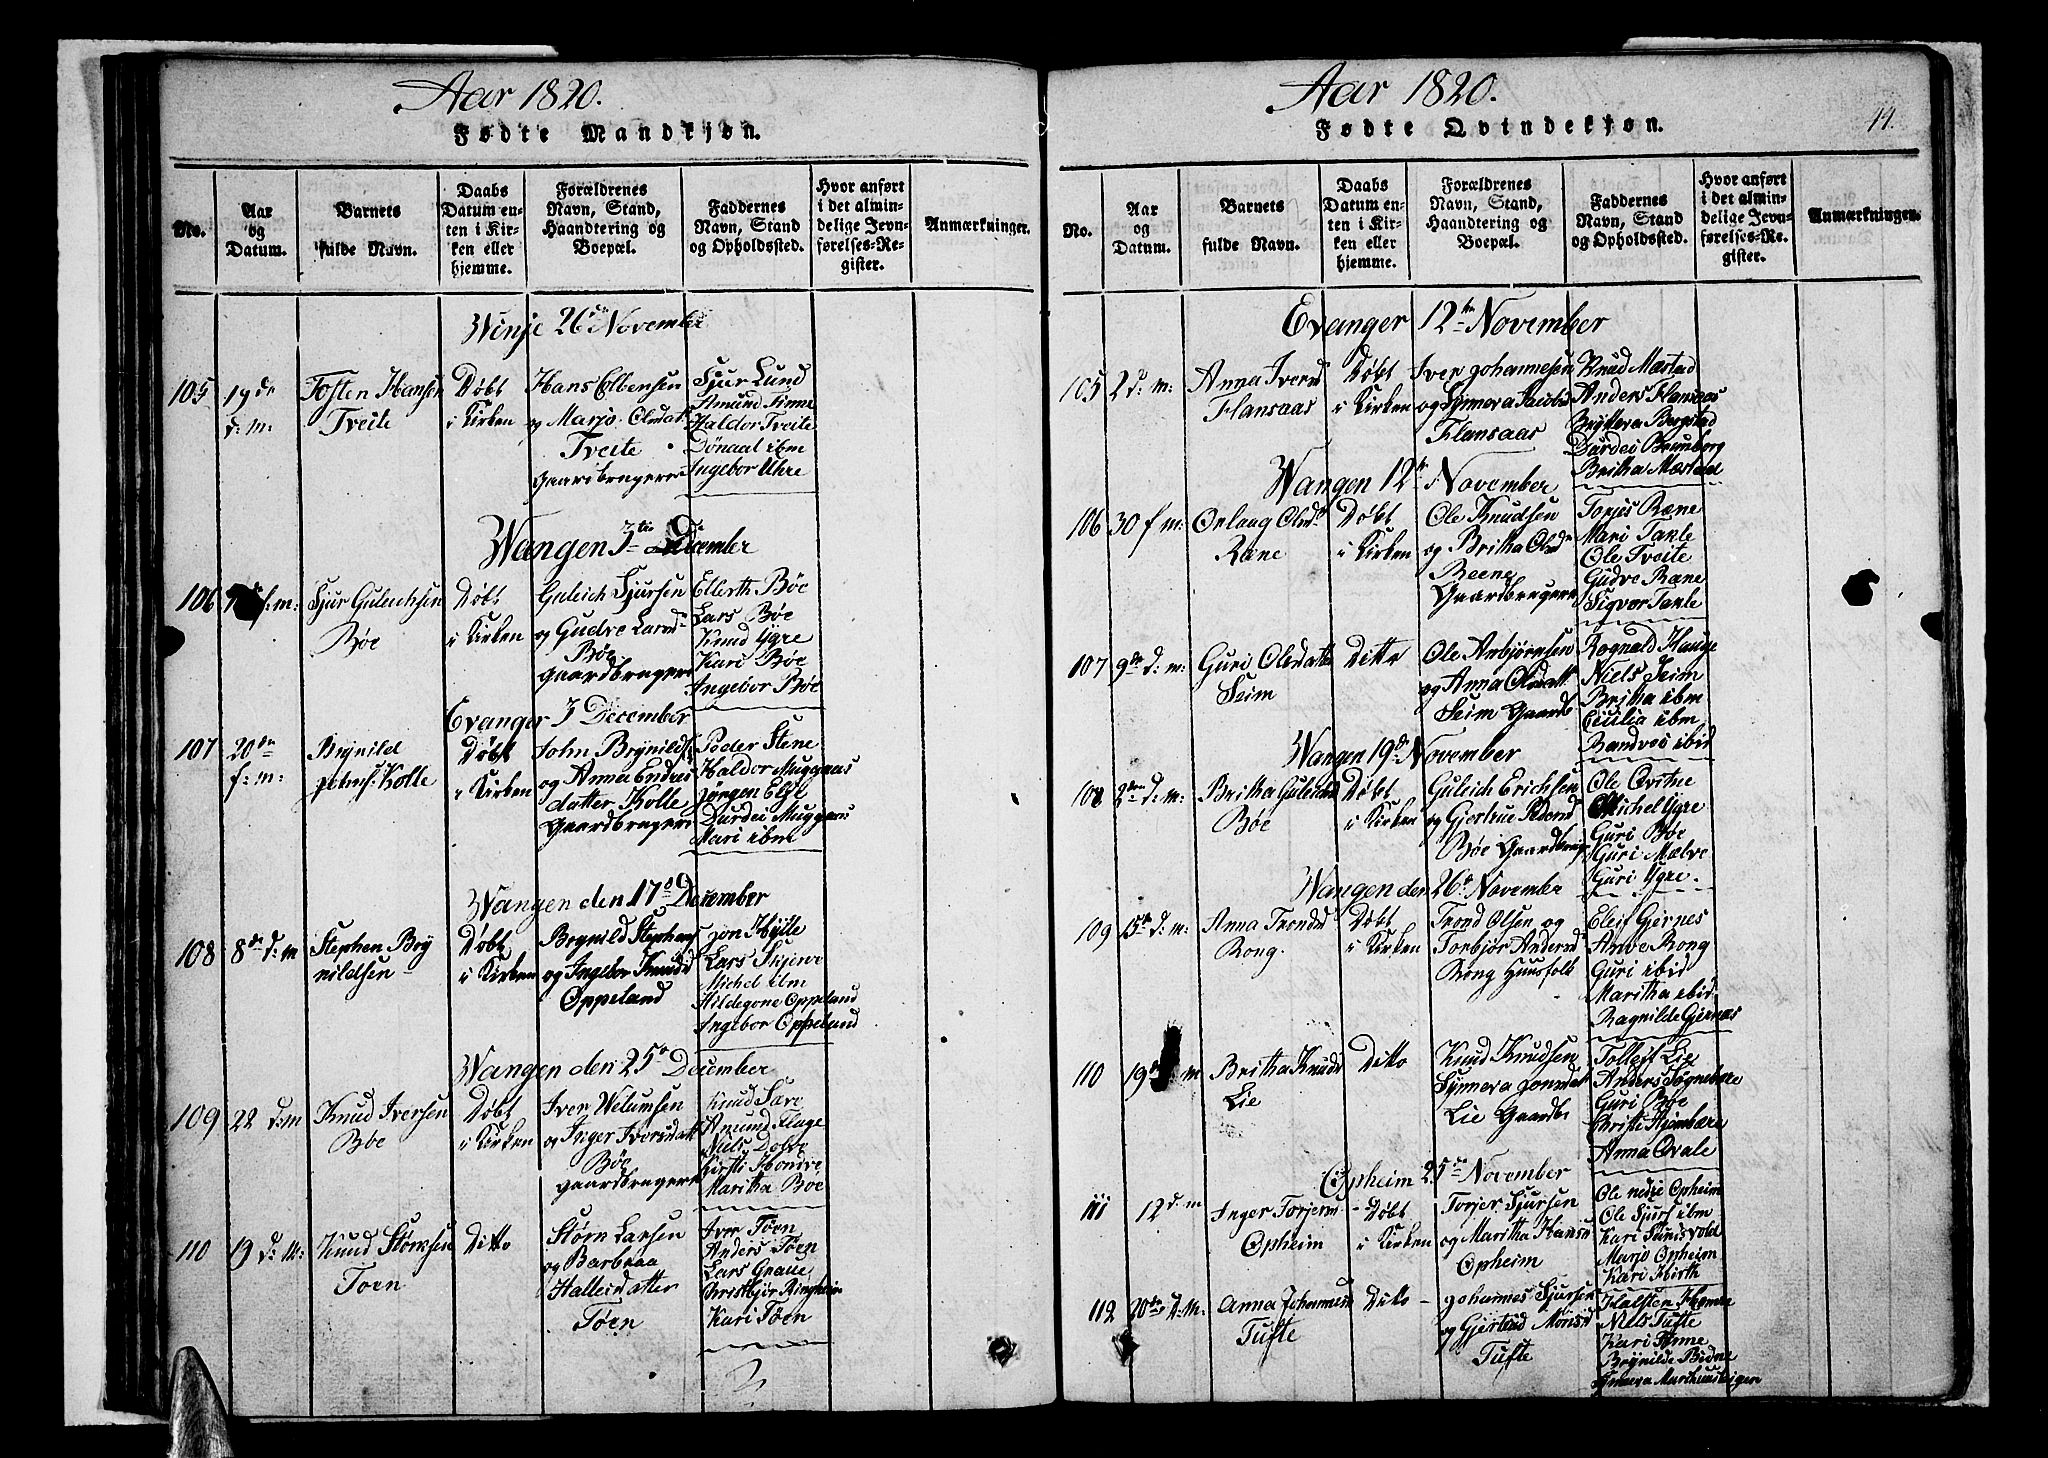 Aar 1820.
Fødte Mandkjøn.
No.
Aar
og
Datum.
Barnets
fulde Navn.
Daabs
Datum en-
ten i Kir-
ken eller
hjemme.
Forældrenes
Navn, Stand,
Haandtering og
Boepæl.
Faddernes
Navn, Stand
og Opholdssted.
Hvor anført
i det almin-
delige Jevn-
førelses-Re-
gister.
Anmærkninger.
Winje 26 November
105
19de
d: m:
Tosten Hansen
Tveite
Døbt
i Kirken
Hans Elbensen
og Marjo Olsdat
Tveite
Gaardbrugere
Sjur Lund
Amund Finne
Haldor Tveite
ibm
Ingebor Uhre
Wangen 3tie December
106
f: m:
Sjur Guleichsen
Bøe
Døbt
i Kirken
Guleich Sjursen
og Gudve Larsd
Bøe
gaardbrugere
Ellerth Bøe
Lars Bøe
Knud Ygre
Kari Bøe
Ingebor Bøe
Evanger 3 December
107
20de
f: m:
Brynild
Kolle
Døbt
i Kirken
John Brynilds
og Anna Endres
datter Kolle
Gaardbrugere
Peder Stene
Haldor Muggaas
Jørgen Else
Durdei Muggaas
Mari ibm
Wangen den 17de December
108
8de d: m
Stephen Bry
nildsen
Døbt
i Kirken
Brynild Stephens
og Ingebor Knuds
Oppeland
Jon Hylle
Lars Skjerve
Michel ibm
Hildegone Oppeland
Ingebor Oppeland
Wangen den 25de December
109
22 d: m
Knud Iversen
Bøe
Døbt
i Kirken
Iver Welumsen
og Inger Iversdatt
Bøe
gaardbrugere
Knud Sæve
Amund Fluge
Niels Dolve
Kirsti Hondve
Maritha Bøe
110
19 d: m:
Knud Størksen
Tøen
Ditto
Størk Larsen
og Barbraa
Halleisdatter
Tøen
Iver Tøen
Anders Tøen
Lars Graue
Christbjør Ringheim
Kari Tøen
Aar 1820.
Fødte Qvindekjøn.
No.
Aar
og
Datum.
Barnets
fulde Navn.
Daabs
Datum en-
ten i Kir-
ken eller
hjemme.
Forældrenes
Navn, Stand,
Haandtering og
Boepæl.
Faddernes
Navn, Stand
og Opholdssted.
Hvor anført
i det almin-
delige Jevn-
førelses-Re-
gister.
Anmærkninger.
Evanger 12te November
105
2 d: m:
Anna Iversd
Flansaas
Døbt
i Kirken
Iver Johannesen
og Synneva Jacobsd
Flansaas
Knud Mæstad
Anders Flansaas
Brytteva Bergstad
Durdei Brunborg
Britha Mæstad
Wangen 12te November
106
30 f m:
Orlaug Olsd
Ræne
Døbt
i Kirken
Ole Knudsen
og Britha Olsd
Reene
Gaardbrugere
Torjus Ræne
Mari Takle
Ole Tveite
Gudve Ræne
Sigvor Takle
107
9de d: m:
Guri Olsdatter
Seim
Ditto
Ole Anbjørnsen
og Anna Olsdatt
Seim Gaardb
Rognald Hauge
Niels Seim
Britha ibm
Cicilia ibm
Randvei ibid
Wangen 19de November
108
d: m:
Britha Guleichsd
Bøe
Døbt
i Kirken
Guleich Erichsen
og Gjertrue Pedersd
Bøe Gaardbrug
Ole Qvitne
Michel Ygre
Guri Bøe
Guri Mælve
Guri Ygre.
Wangen den 26de November
109
15de d: m:
Anna Trondsd
Rong.
Døbt
i Kirken
Trond Olsen og
Torbjør Andersd
Rong Huusfolk
Eleif Gjernes
Anve Rong
Guri ibid
Maritha ibid
Ragnilde Gjernæs
110
19de m
Britha Knudsd
Lie
Ditto
Knud Knudsen
Synneva Jonsdat
Lie Gaardbr
Tolleif Lie
Anders Sognebøe
Guri Bøe
Anna Qvale
Opheim 25de November
111
12 d: m
Inger Torjersd
Opheim
Døbt
i Kirken
Torjer Sjursen
og Maritha Hansd
Opheim
Ole nedre Opheim
Ole Sjurs ibm
Kari
Marjo Opheim
Kari Hirth
112
20de d: m:
Anna Johannesd
Tufte
Ditto
Johannes Sjursen
og Gjertrud Monsd
Tufte
Halsten
Niels Tufte
Kari Finne
Brynilde Bidne